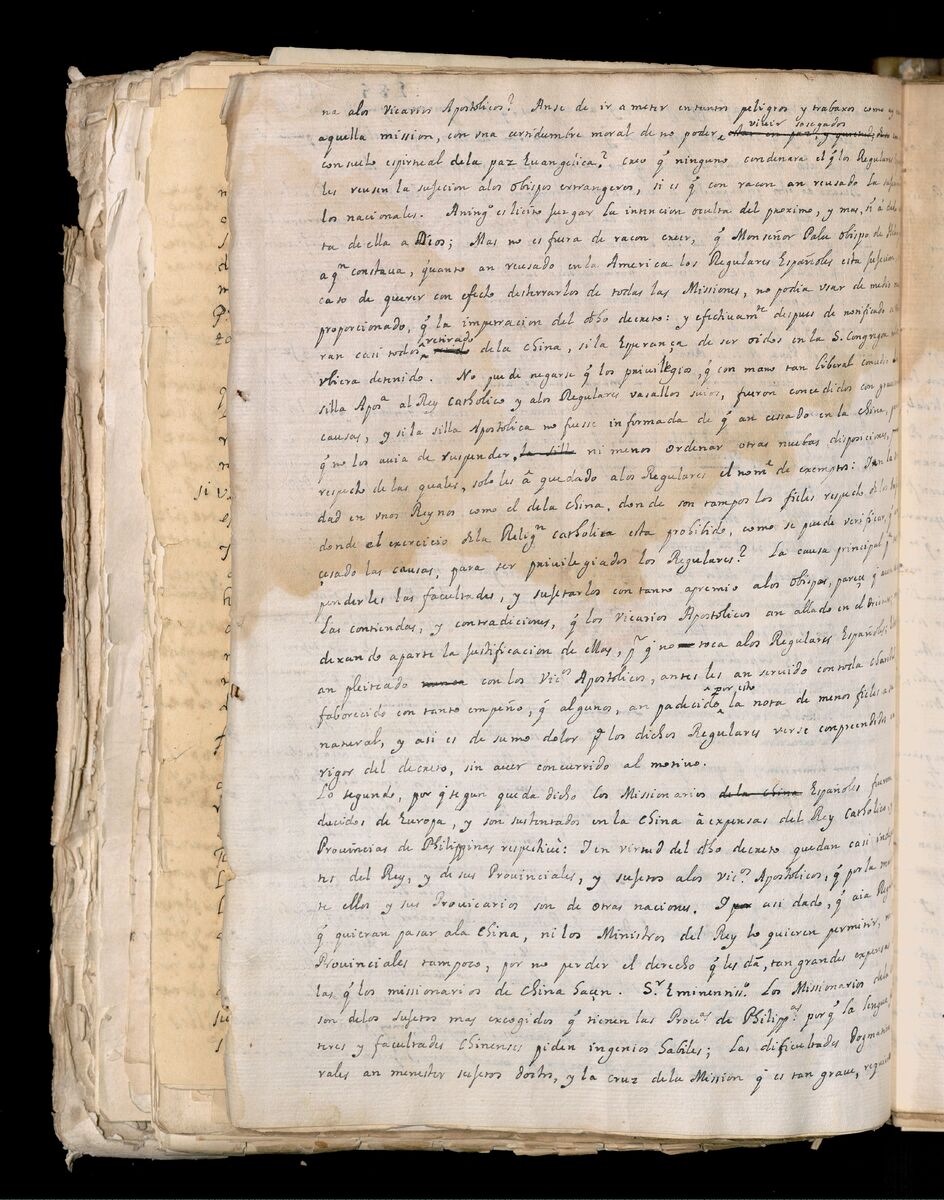 na alos Vicarios Apostolicos? Anse de ir a meter en tantos peligros y trabaxos como
vivir sosegados
aquella mission, con una certidumbre moral de no poder estar en paz, y quietud,
consuelo espiritual dela paz Evangelica? creo q̃ ninguno condenara el q̃ los Regulares
les reusen la sujecion alos obispos extrangeros, si es q̃ con raçon an reusado la
los nacionales. A ningo es licito juzgar la intencion oculta del proximo, y mas, si
ta de ella a Dios; Mas no es fuera de raçon creer, q̃ Monseñor Palu obispo de
a qn constava, q̃uanto an reusado en la America los Regulares Españoles esta sujecion
caso de querer con efecto desterrarlos de todas las Missiones, no podia usar de medio
proporcionado, q̃ la impetracion del dho decreto: y efectivamte despues de notificado
retirado
ran casi todos de la China, si la Esperança de ser oidos en la S. Congrega
ubiera detenido. No puede negarse q̃ los privilegios, q̃ con mano tan liberal concedio
silla Aposa al Rey catholico y alos Regulares vasallos suios, fueron concedidos con
causas, y si la silla Apostolica no fuesse informada de q̃ an cesado en la China,
q̃ no los avia de suspender, la silla ni menos ordenar otras nuebas disposiciones,
respecto de las quales, solo les â quedado alos Regulares el nome de exemptos: I en
dad en unos Reynos como el dela China, donde son tampos los fieles respecto de los
donde el exercicio dela Religon catholica esta prohibido, como se puede verificar, q̃
cesado las causas, para ser privilegiados los Regulares? La causa principal
penderles las facultades, y sujetarlos con tanto apremio alos obispos, parece q̃
las contiendas, y contradiciones, q̃ los Vicarios Apostolicos an allado en el
dexando aparte la justificacion de ellas, q̃ no toca alos Regulares Españoles,
an pleiteado nunca con los Vicos Apostolicos, antes les an servido con toda
por esto
faborecido con tanto empeño, q̃ algunos, an padecido la nota de menos fieles a
natural, y asi es de sumo dolor los dichos Regulares verse conprendidos
rigor del decreto, sin aver concurrido al motivo.
Lo segundo, por q̃ segun queda dicho los Missionarios dela China Españoles fueron
ducidos de Europa, y son sustentados en la China â expensas del Rey Catholico,
Provincias de Philippinas respectivè: I en virtud del dho decreto quedan casi
tes del Rey, y de sus Provinciales, y sujetos alos Vicos Apostolicos, q̃ por la
te ellos y sus Provicarios son de otras naciones. I por asi dado, q̃ aia
q̃ quieran pasar ala China, ni los Ministros del Rey lo quieren permitir,
Provinciales tampoco, por no perder el derecho q̃ les dã, tan grandes expensas
las q̃ los missionarios de China haçen. Sr Eminenniso. Los Missionarios
son delos sujetos mas escogidos q̃ tienen las Provas de Philippas porq̃ la lengua,
teres y facultades Chinenses piden ingenios habiles; Las dificultades Dogmati
rales an menester sujetos doctos, y la cruz dela Mission q̃ es tan grave,